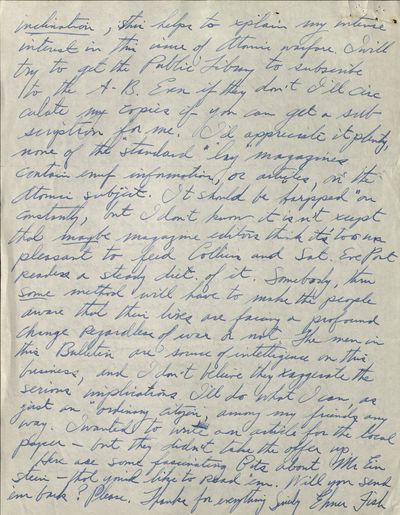 inclination, this helps to xplain my intense
interest in this issue of Atomic warfare. I will
try to get the Public Library to subscribe
to the A.B. Even if they don't I'll circ
culate my copies if you can get a sub-
scription for me. I'd appreciate it plenty,
none of the "standard" "lay" magazines
contain enuf information, or articles, on the
Atomic subject. It should be "harpped" on
constantly, but I don't know it isn't xcept
that maybe magazine editors think it's too un
pleasant to feed Colliers and Sat. Eve Post
readers a steady diet of it. Somebody, thru
some method will have to make the people
aware that their lives are facing a profound
change regardless of war or not. The men in
this Bulletin are source of intelligence in this
business, and I don't believe they xaggerate the
serious implications. I'll do what I can, as
just an ordinary citizen, among my friends any
way. I wanted to write an article for the local
paper - but they didn't take the offer up.
Here are some fascinating bits about Mr Ein
stein - that you'd like to read 'em. Will you send
'em back? Please. Thanks for everything